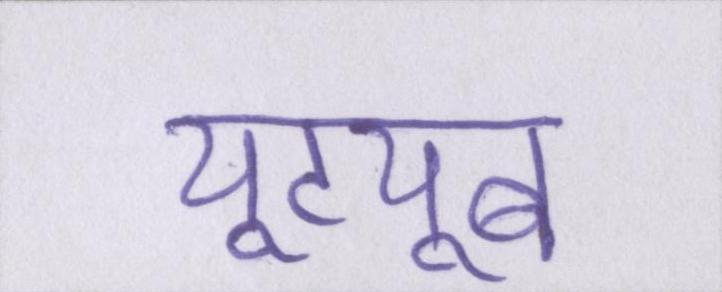 यूटयूब